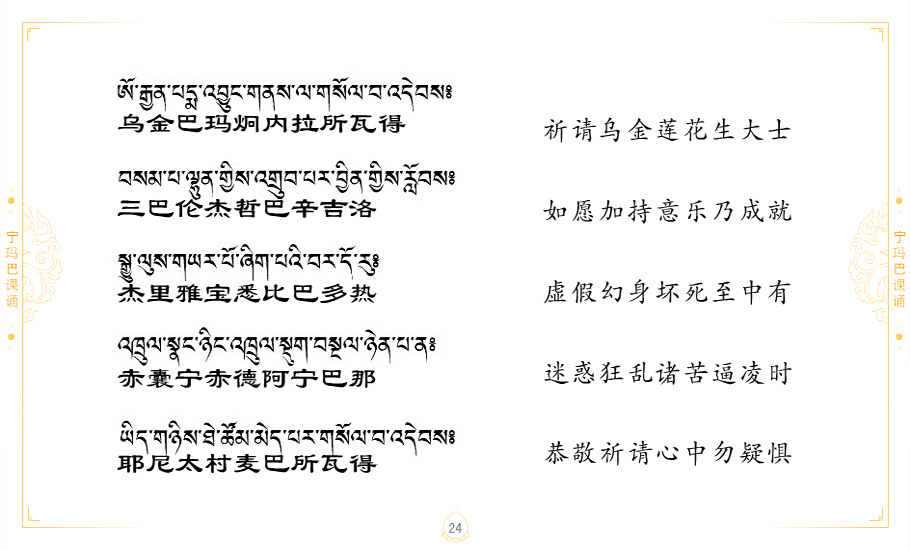 ཨོ་རྒྱན་པདྨ་འབྱུང་གནས་ལ་གསོལ་བ་འདེབས༔
乌金巴玛炯内拉所瓦得
祈请乌金莲花生大士
བསམ་པ་ལྷུན་གྱིས་འགྲུབ་པར་བྱིན་གྱིས་རློབས༔
三巴伦杰哲巴辛吉洛
如愿加持意乐乃成就
སྒྱུ་ལུས་གཡར་པོ་ཞིག་པའི་བར་དོ་རུ༔
杰里雅宝悉比巴多热
虚假幻身坏死至中有
འཁྲུལ་སྣང་ཉིང་འཁྲུལ་སྡུག་བསྔལ་ཉེན་པ་ན༔
赤囊宁赤德阿宁巴那
迷惑狂乱诸苦逼凌时
ཡིད་གཉིས་ཐེ་ཚོམ་མེད་པར་གསོལ་བ་འདེབས༔
耶尼太村麦巴所瓦得
恭敬祈请心中勿疑惧
宁玛巴课诵
宁玛巴课诵
24